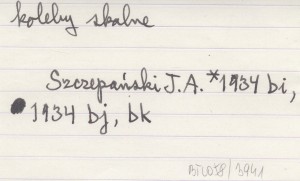 koleby skalne
Szczepański J.A. *1934 bi,
1934 bj, bk
BTL038/3941